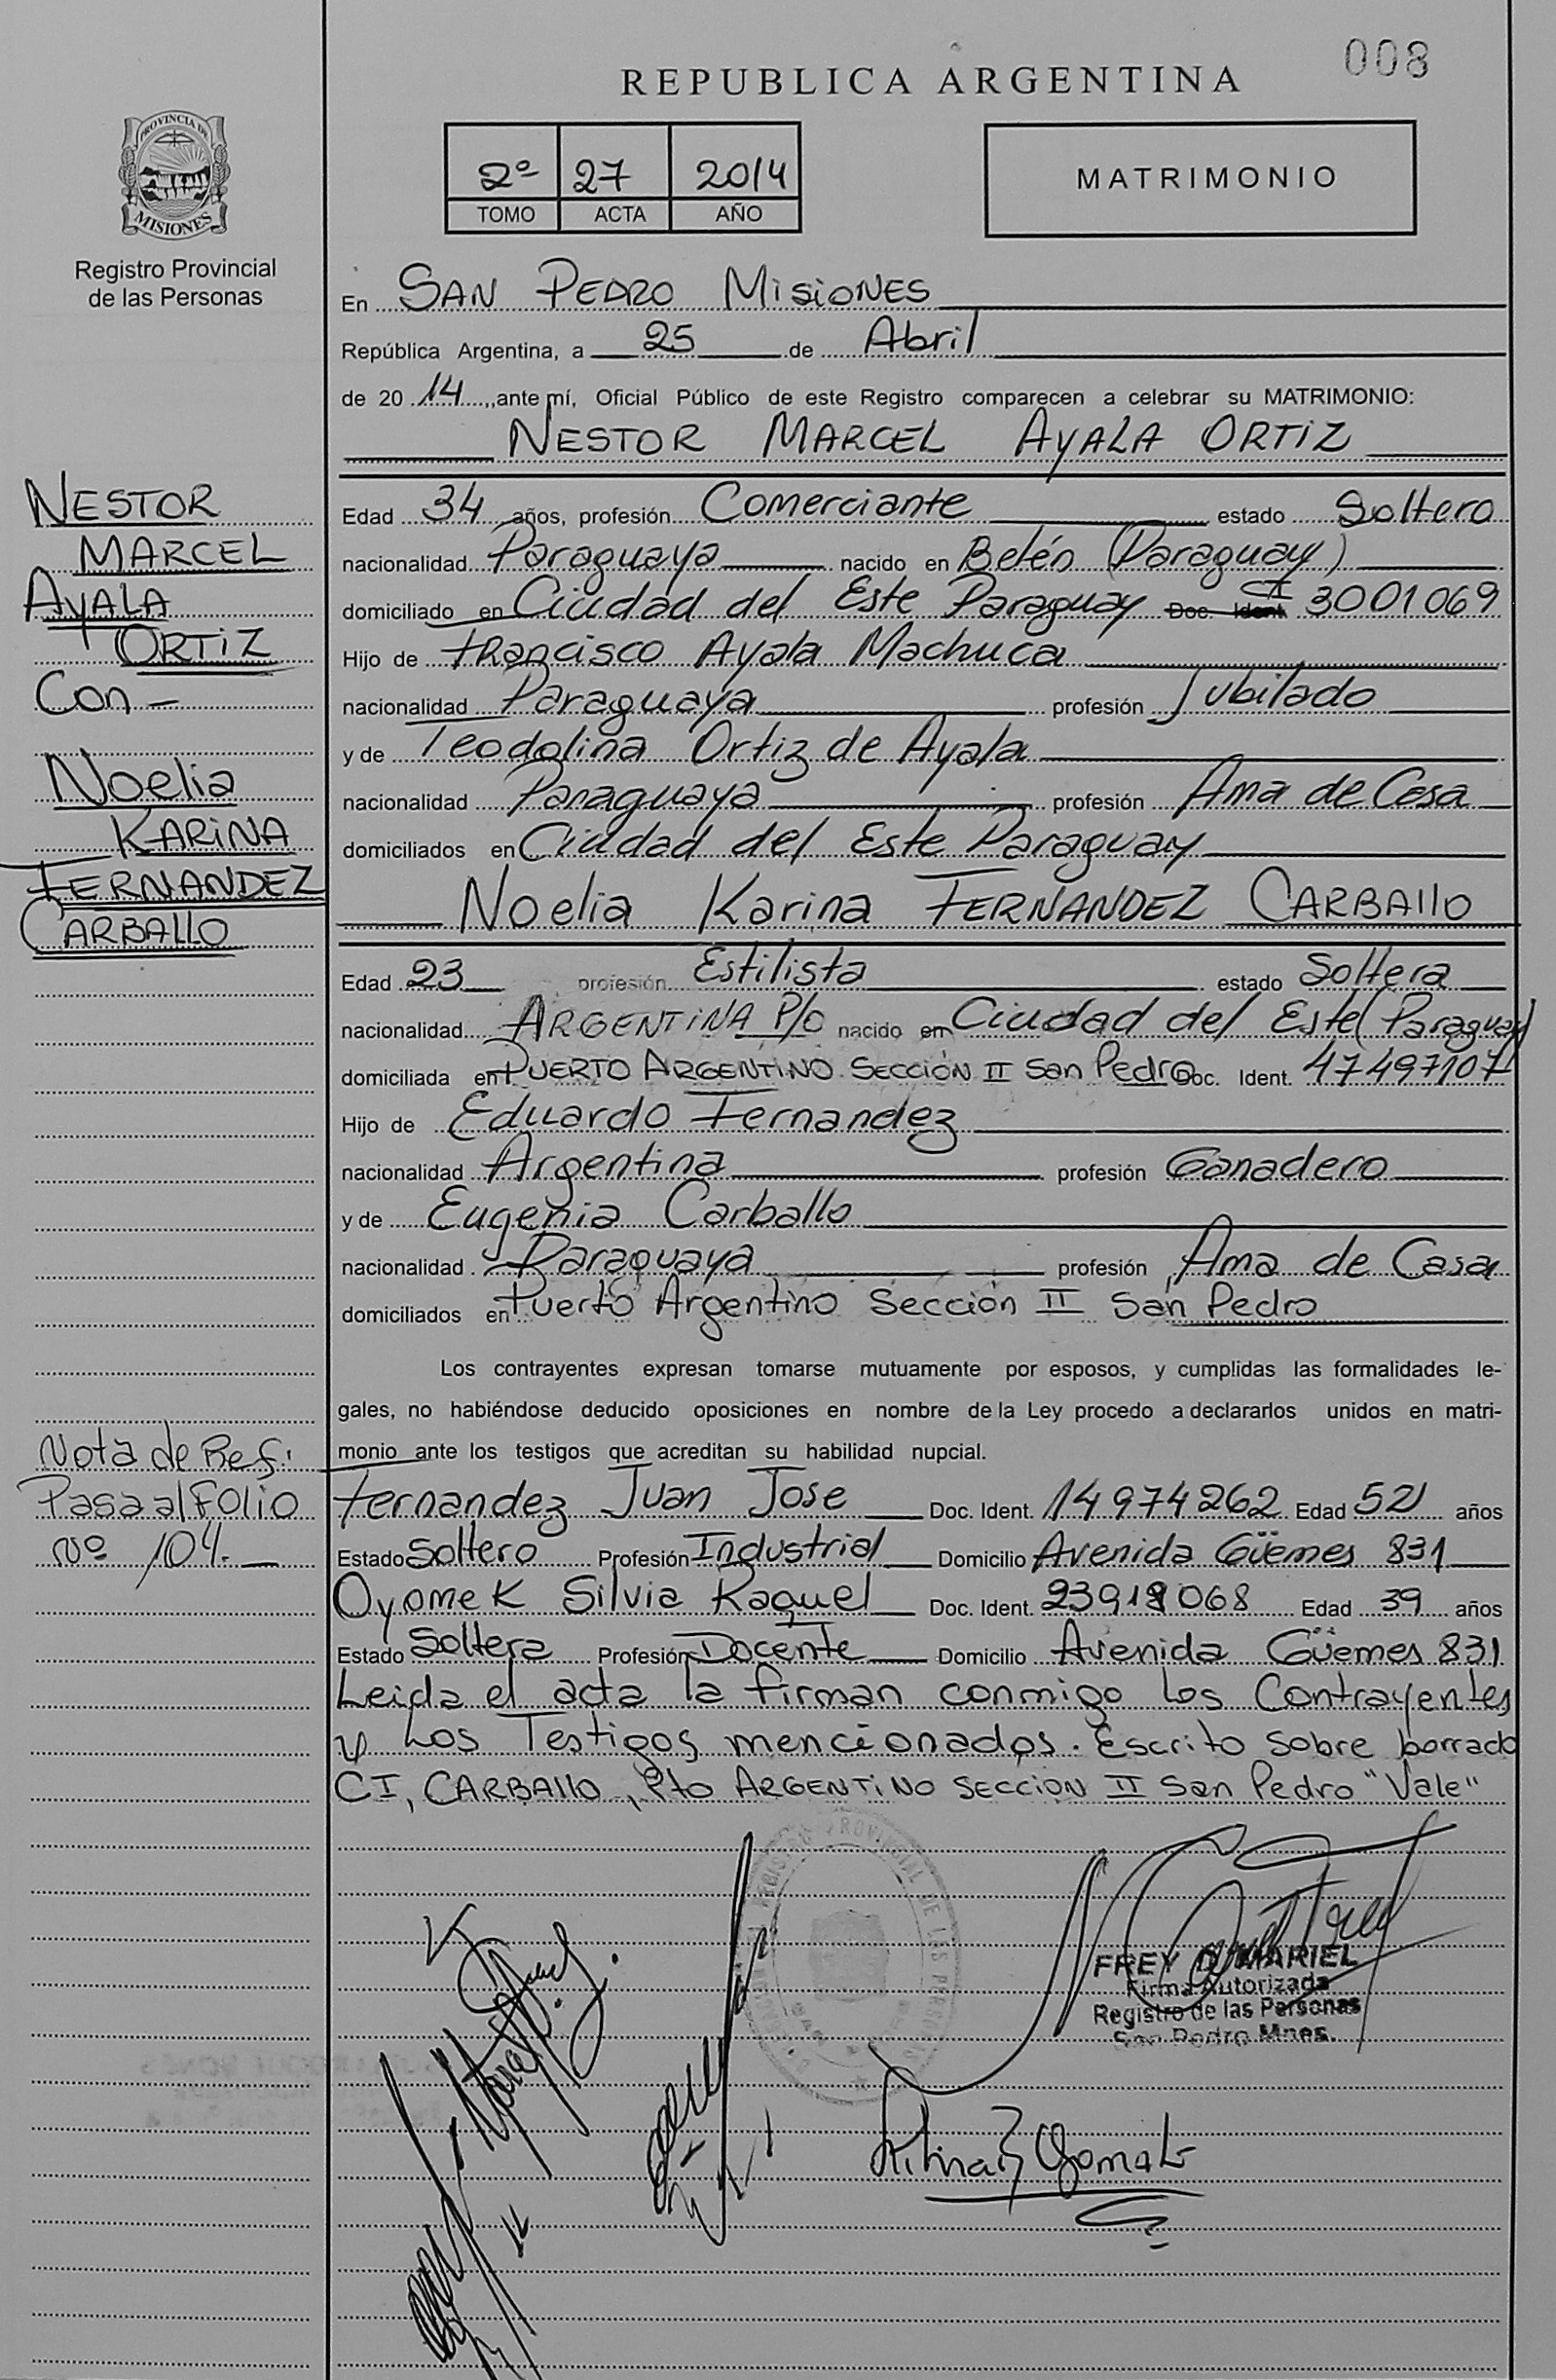 008
REPUBLICA ARGENTINA
2º 27 2014
TOMO ACTA AÑO
MATRIMONIO
PROVINCIA DE
MISIONES
Registro Provincial
de las Personas
En SAN PEDRO MISIONES
República Argentina, a 25 de Abril
de 20 14, ante mí, Oficial Público de este Registro comparecen a celebrar su MATRIMONIO:
NESTOR MARCEL AYALA ORTIZ
NESTOR
MARCEL
AYALA
ORTIZ
Con -
Noelia
KARINA
FERNANDEZ
CARBALLO
Edad 34 años, profesión Comerciante estado Soltero
nacionalidad Paraguaya nacido en Belén (Paraguay)
domiciliado en Ciudad del Este Paraguay Doc. Ident. CI 3001069
Hijo de Francisco Ayala Machuca
nacionalidad Paraguaya profesión Jubilado
y de Teodolina Ortiz de Ayala
nacionalidad Paraguaya profesión Ama de Casa
domiciliados en Ciudad del Este Paraguay
Noelia Karina FERNANDEZ CARBAllO
Edad 23 profesión Estilista estado Soltera
nacionalidad ARGENTINA P/O nacido en Ciudad del Este (Paraguay)
domiciliada en PUERTO ARGENTINO SECCIÓN II San Pedro Doc. Ident. 47497107
Hijo de Eduardo Fernandez
nacionalidad Argentina profesión Ganadero
y de Eugenia Carballo
nacionalidad Paraguaya profesión Ama de Casa
domiciliados en Puerto Argentino Sección II San Pedro
Los contrayentes expresan tomarse mutuamente por esposos, y cumplidas las formalidades le-
gales, no habiéndose deducido oposiciones en nombre de la Ley procedo a declararlos unidos en matri-
monio ante los testigos que acreditan su habilidad nupcial.
Nota de Ref:
Pasa al FOLIO
Nº 104.
Fernandez Juan Jose Doc. Ident. 14974262 Edad 52 años
Estado Soltero Profesión Industrial Domicilio Avenida Güemes 831
Oyomek Silvia Raquel Doc. Ident. Edad 39 años
Estado Soltera Profesión Docente Domicilio Avenida Güemes 831
Leida el acta la firman conmigo los Contrayentes
y Los Testigos mencionados. Escrito sobre borrado
CI, CARBAllO, Pto ARGENTINO SECCION II San Pedro "Vale"
REGISTRO PROVINCIAL DE LAS PERSONAS
FREY D. MARIEL
Firma Autorizada
Registro de las Personas
San Pedro Mnes.